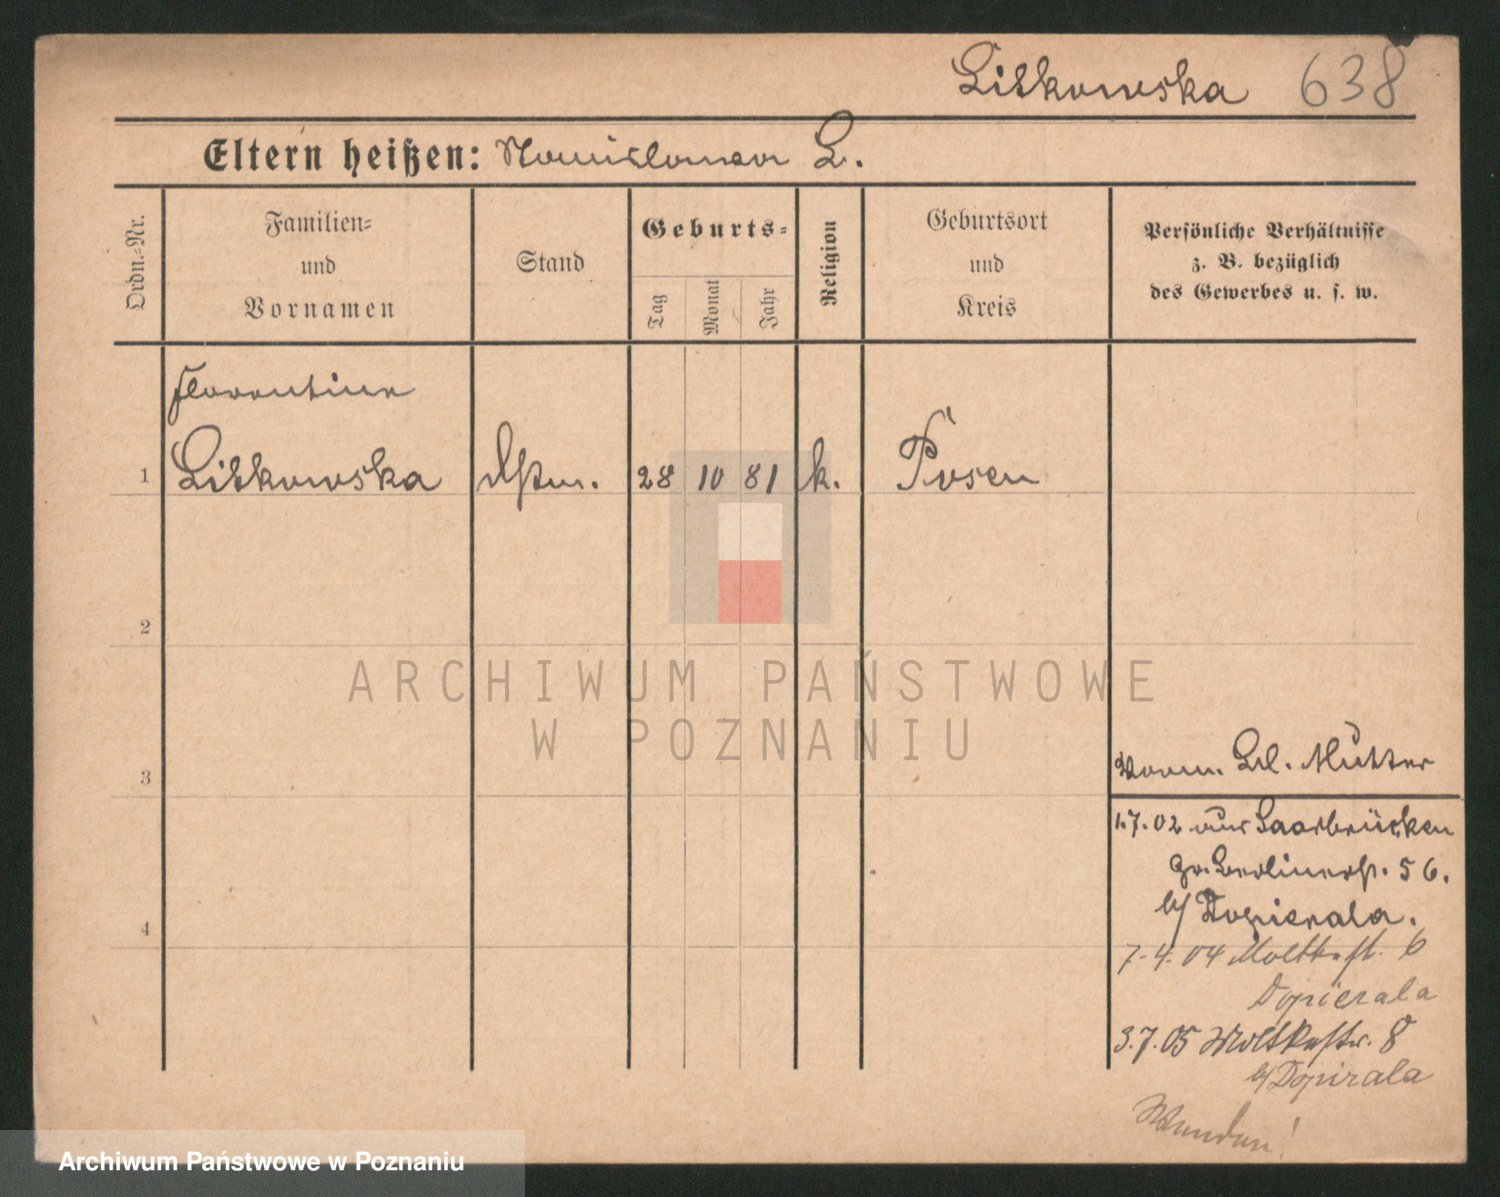 Litkowska 638
Eltern heißen: Stanislawa L.
Ordn.-Nr.
Familien-
und
Vornamen
Stand
Geburts-
Tag
Monat
Jahr
Religion
Geburtsort
und
Kreis
Persönliche Verhältnisse
z. B. bezüglich
des Gewerbes u. s. w.
Florentine
1 Litkowska 28 10 81 k. Posen
2
3
4
Vorm. Mutter
1.7.02 aus Saarbrücken
Gr. Berlinerstr. 56.
b/ Dopierala.
7.4.04 Moltkestr. 6
Dopierala
3.7.05 Moltkestr. 8
b/ Dopirala
Wenden!
ARCHIWUM PAŃSTWOWE
W POZNANIU
Archiwum Państwowe w Poznaniu